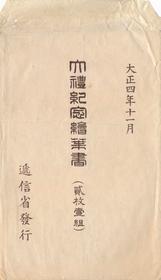 大正四年十一月
大禮紀念繪葉書
（貳枚壹組）
遞信省發行